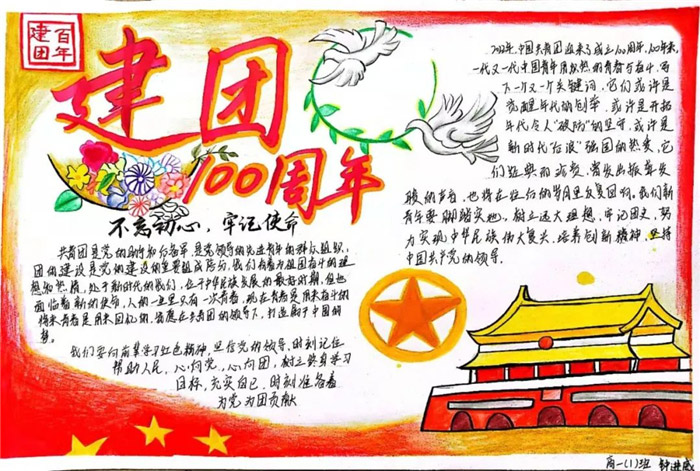 百年
建团
建团
100周年
不忘初心，牢记使命
共青团是党的助手和后备军，是党领导的先进青年的群众组织，
团的建设是党的建设的重要组成部分，我们有着为祖国奋斗的理
想和热情，处于新时代的我们，位于中华民族发展的最好时期，但也
面临着新的使命，人的一生只有一次青春，现在青春是用来奋斗的
将来青春是用来回忆的，我愿在共青团的领导下，打造属于中国的
梦。
我们要向前辈学习红色精神，坚信党的领导，时刻记住
帮助人民，心向党，心向团，树立终身学习
目标，充实自己，时刻准备着
为党为团贡献
2022年，中国共青团迎来了成立100周年，100年来，
一代又一代中国青年用炽热的青春与奋斗，写
下一个又一个关键词，它们或许是
觉醒年代的创举，或许是开拓
年代令人“破防”的坚守，或许是
新时代“后浪”强国的热爱，它
们经典而
的声音，也将在往后的岁月里反复回响，我们新
青年要脚踏实地，树立远大理想，牢记团史，努
力实现中华民族伟大复兴，培养创新精神，坚持
中国共产党的领导。
高一(1)班